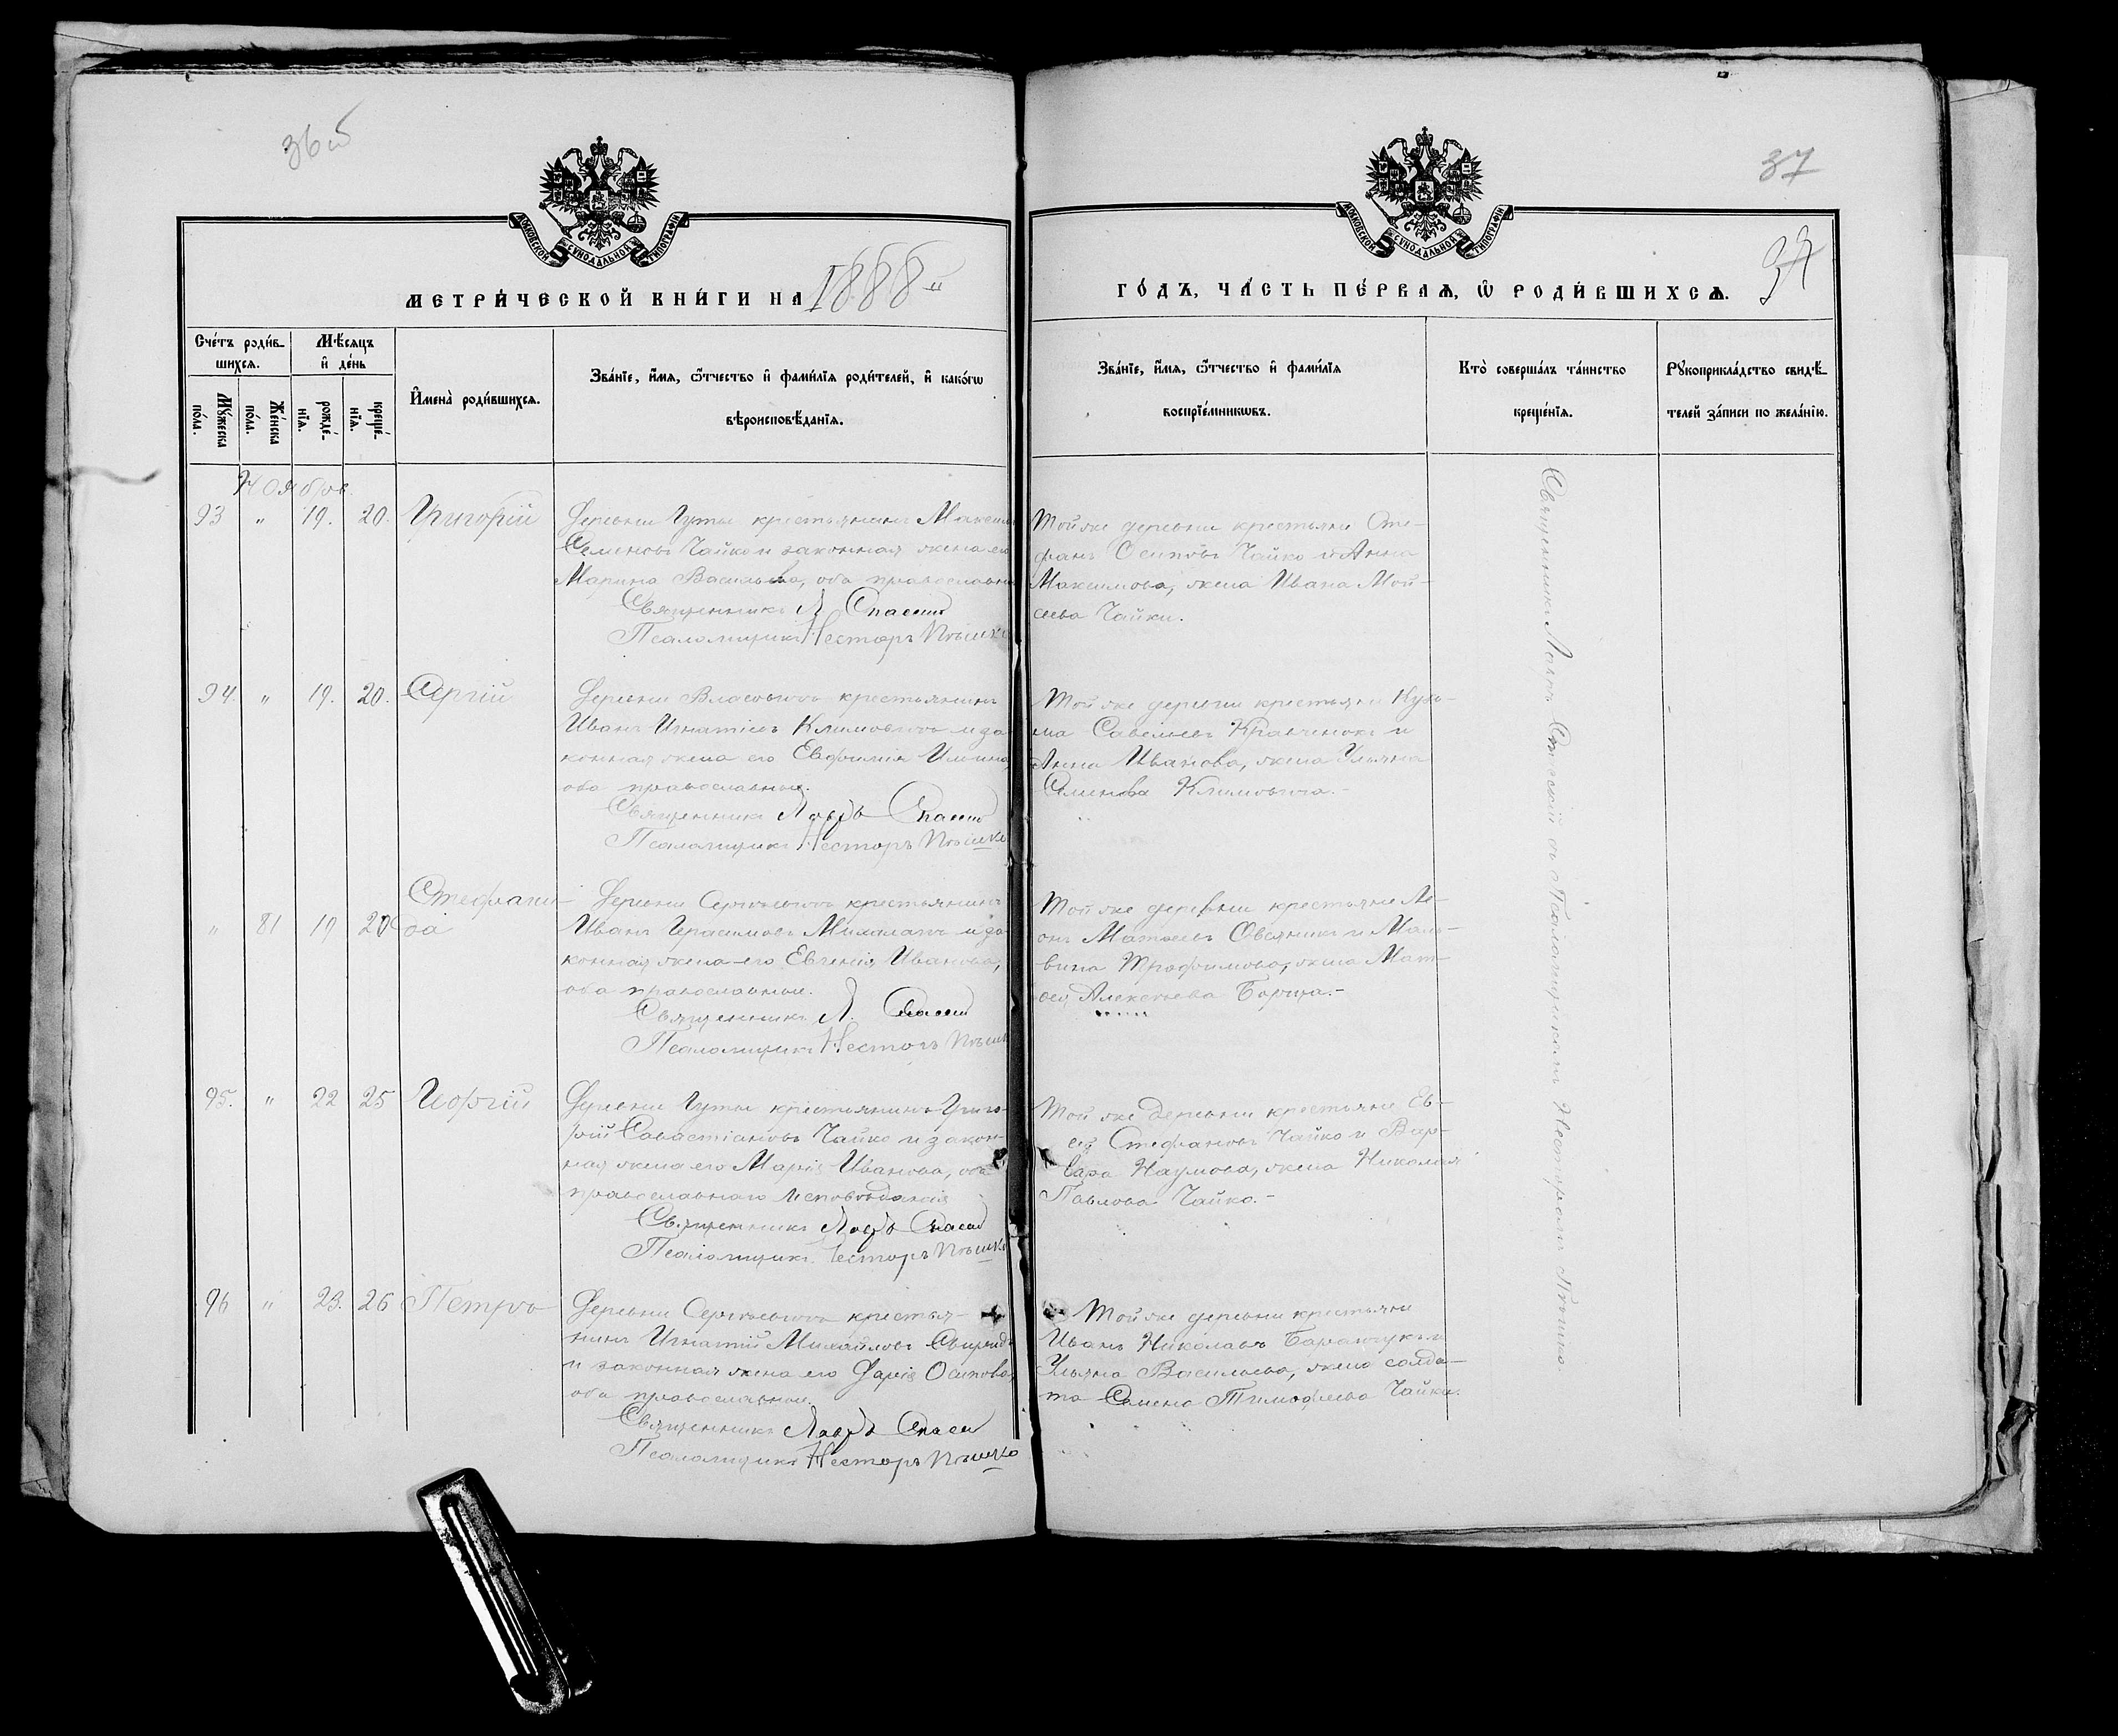 36 об
37
МОСКОВСКОЙ СУНОДАЛЬНОЙ ТИПОГРАФІИ
МОСКОВСКОЙ СУНОДАЛЬНОЙ ТИПОГРАФІИ
МЕТРИ́ЧЕСКОЙ КНИ́ГИ НА 1888 й
ГО́ДЪ, ЧА́СТЬ ПЕ́РВАѦ, Ѡ҆ РОДИ́ВШИХСѦ.
37
Сче́тъ роди́в-
шихсѧ.
Мѣ́сѧцъ
и҆ де́нь
Мꙋ́жеска по́ла.
Же́нска по́ла.
рожде́-нїѧ.
креще́-нїѧ.
И҆мена̀ роди́вшихсѧ.
Зва́нїе, и҆́мѧ, ѻ҆́тчество и҆ фами́лїѧ роди́телей, и҆ како́гѡ
вѣроисповѣ́данїѧ.
Зва́нїе, и҆́мѧ, ѻ҆́тчество и҆ фами́лїѧ
воспрїе́мникѡвъ.
Кто̀ соверша́лъ та́инство
креще́нїѧ.
Рꙋкоприкла́дство свидѣ́-
телей за́писи по жела́нїю.
Ноябрь
93 " 19. 20. Григорій
Деревни Гуты крестьянинъ Максимъ
Семеновъ Чайко и законная жена его
Марина Васильева, оба православные
Священникъ Л Спасскій
Псаломщикъ Несторъ Пѣшко
Той же деревни крестьяне Сте-
фанъ Осиповъ Чайко и Анна
Максимова, жена Ивана Мой-
сеева Чайки.
94. " 19. 20. Сергій
Деревни Власовичъ крестьянинъ
Иванъ Игнатіевъ Климовичъ и за
конная жена его Евфимія
оба православные.
Священникъ Лавръ Спасскій
Псаломщикъ Несторъ Пѣшко
Той же деревни крестьяне Кузь-
ма Савельевъ Кравченокъ и
Анна Иванова, жена Ульяна
Семенова Климовича.-
" 81 19 20 Стефани-
да
Деревни крестьянинъ
Иванъ Герасимовъ и за
конная жена его Евгенія Иванова,
оба православные.
Священникъ Л. Спасскій
Псаломщикъ Несторъ Пѣшко
Той же деревни крестьяне Ле-
онъ Матвеевъ Овсяникъ и Маль-
вина Трофимова, жена Мат-
вея Алексѣева Борща.-
95. " 22 25 Георгій
Деревни Гуты крестьянинъ Григо-
рій Савастіановъ Чайко и закон-
ная жена его Марія Иванова, оба
православнаго исповѣданія
Священникъ Лавръ Спасскій
Псаломщикъ Несторъ Пѣшко
Той же деревни крестьяне Ев-
сей Стефановъ Чайко и Вар-
вара Наумова, жена Николая
Павлова Чайко.-
96 " 23. 26 Петръ
Деревни крестья-
нинъ Игнатій Михайловъ
и законная жена его Дарія Осипова,
оба православные.
Священникъ Лавръ Спасскій
Псаломщикъ Несторъ Пѣшко
Той же деревни крестьяне
Иванъ Николаевъ Баранчукъ и
Ульяна Васильева, жена солда-
та Семена Тимофеева Чайки.
Священникъ Лавръ Спасскій съ Псаломщикомъ Несторомъ Пѣшко.